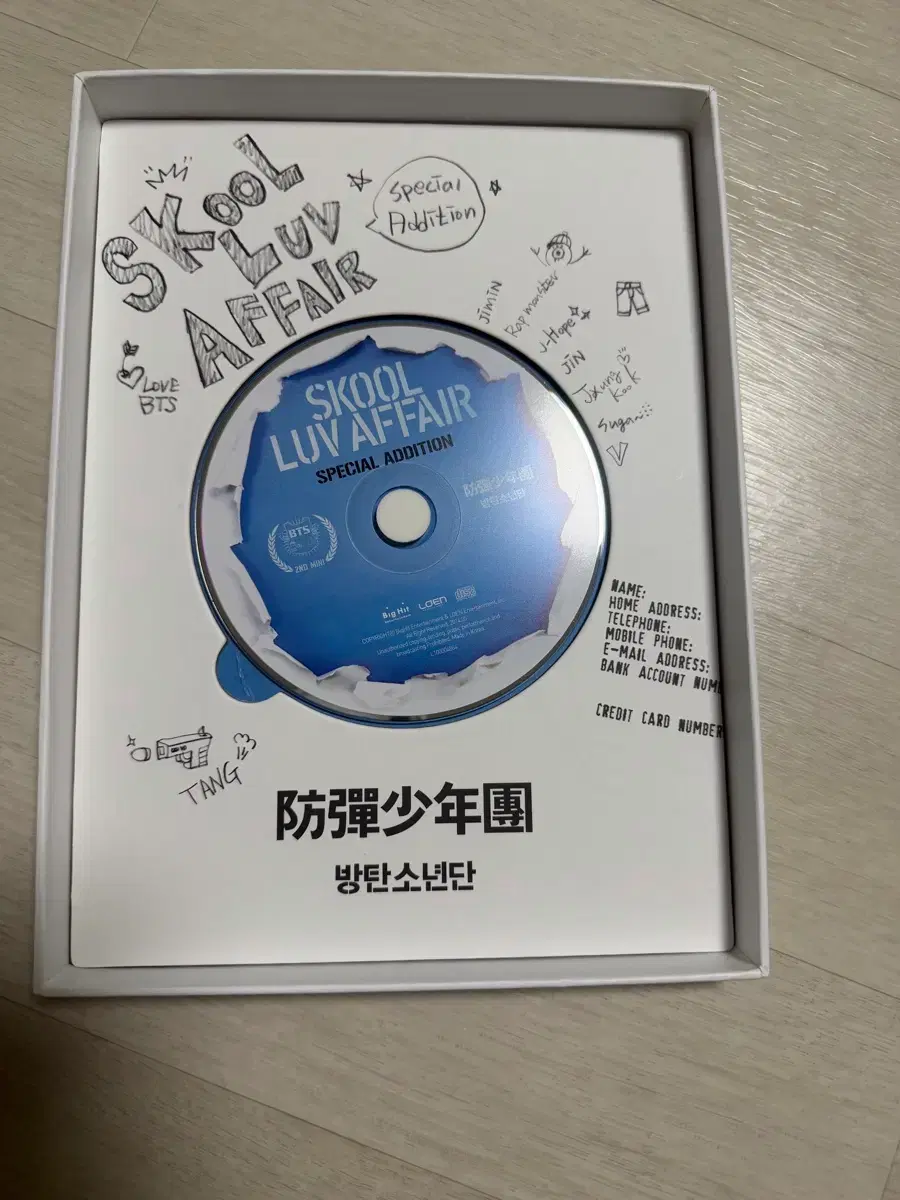 SKOOL
LUV
AFFAIR
Special
Addition
Jimin
Rap monster
J-Hope
JIN
Jxung
Kook
Suga
LOVE
BTS
SKOOL
LUV AFFAIR
SPECIAL ADDITION
防彈少年團
방탄소년단
BTS
2ND MINI
Big Hit
LOEN
NAME:
HOME ADDRESS:
TELEPHONE:
MOBILE PHONE:
E-MAIL ADDRESS:
BANK ACCOUNT NUM
CREDIT CARD NUMBER
TANG
防彈少年團
방탄소년단